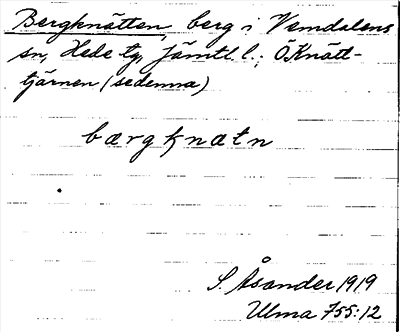 Bergknätten, berg i Vemdalens
sn, Hede tg, Jämtl. l.; Ö Knätt-
tjärnen (se denna)
bærgknætn
S. Åsander 1919
Ulma 755:12